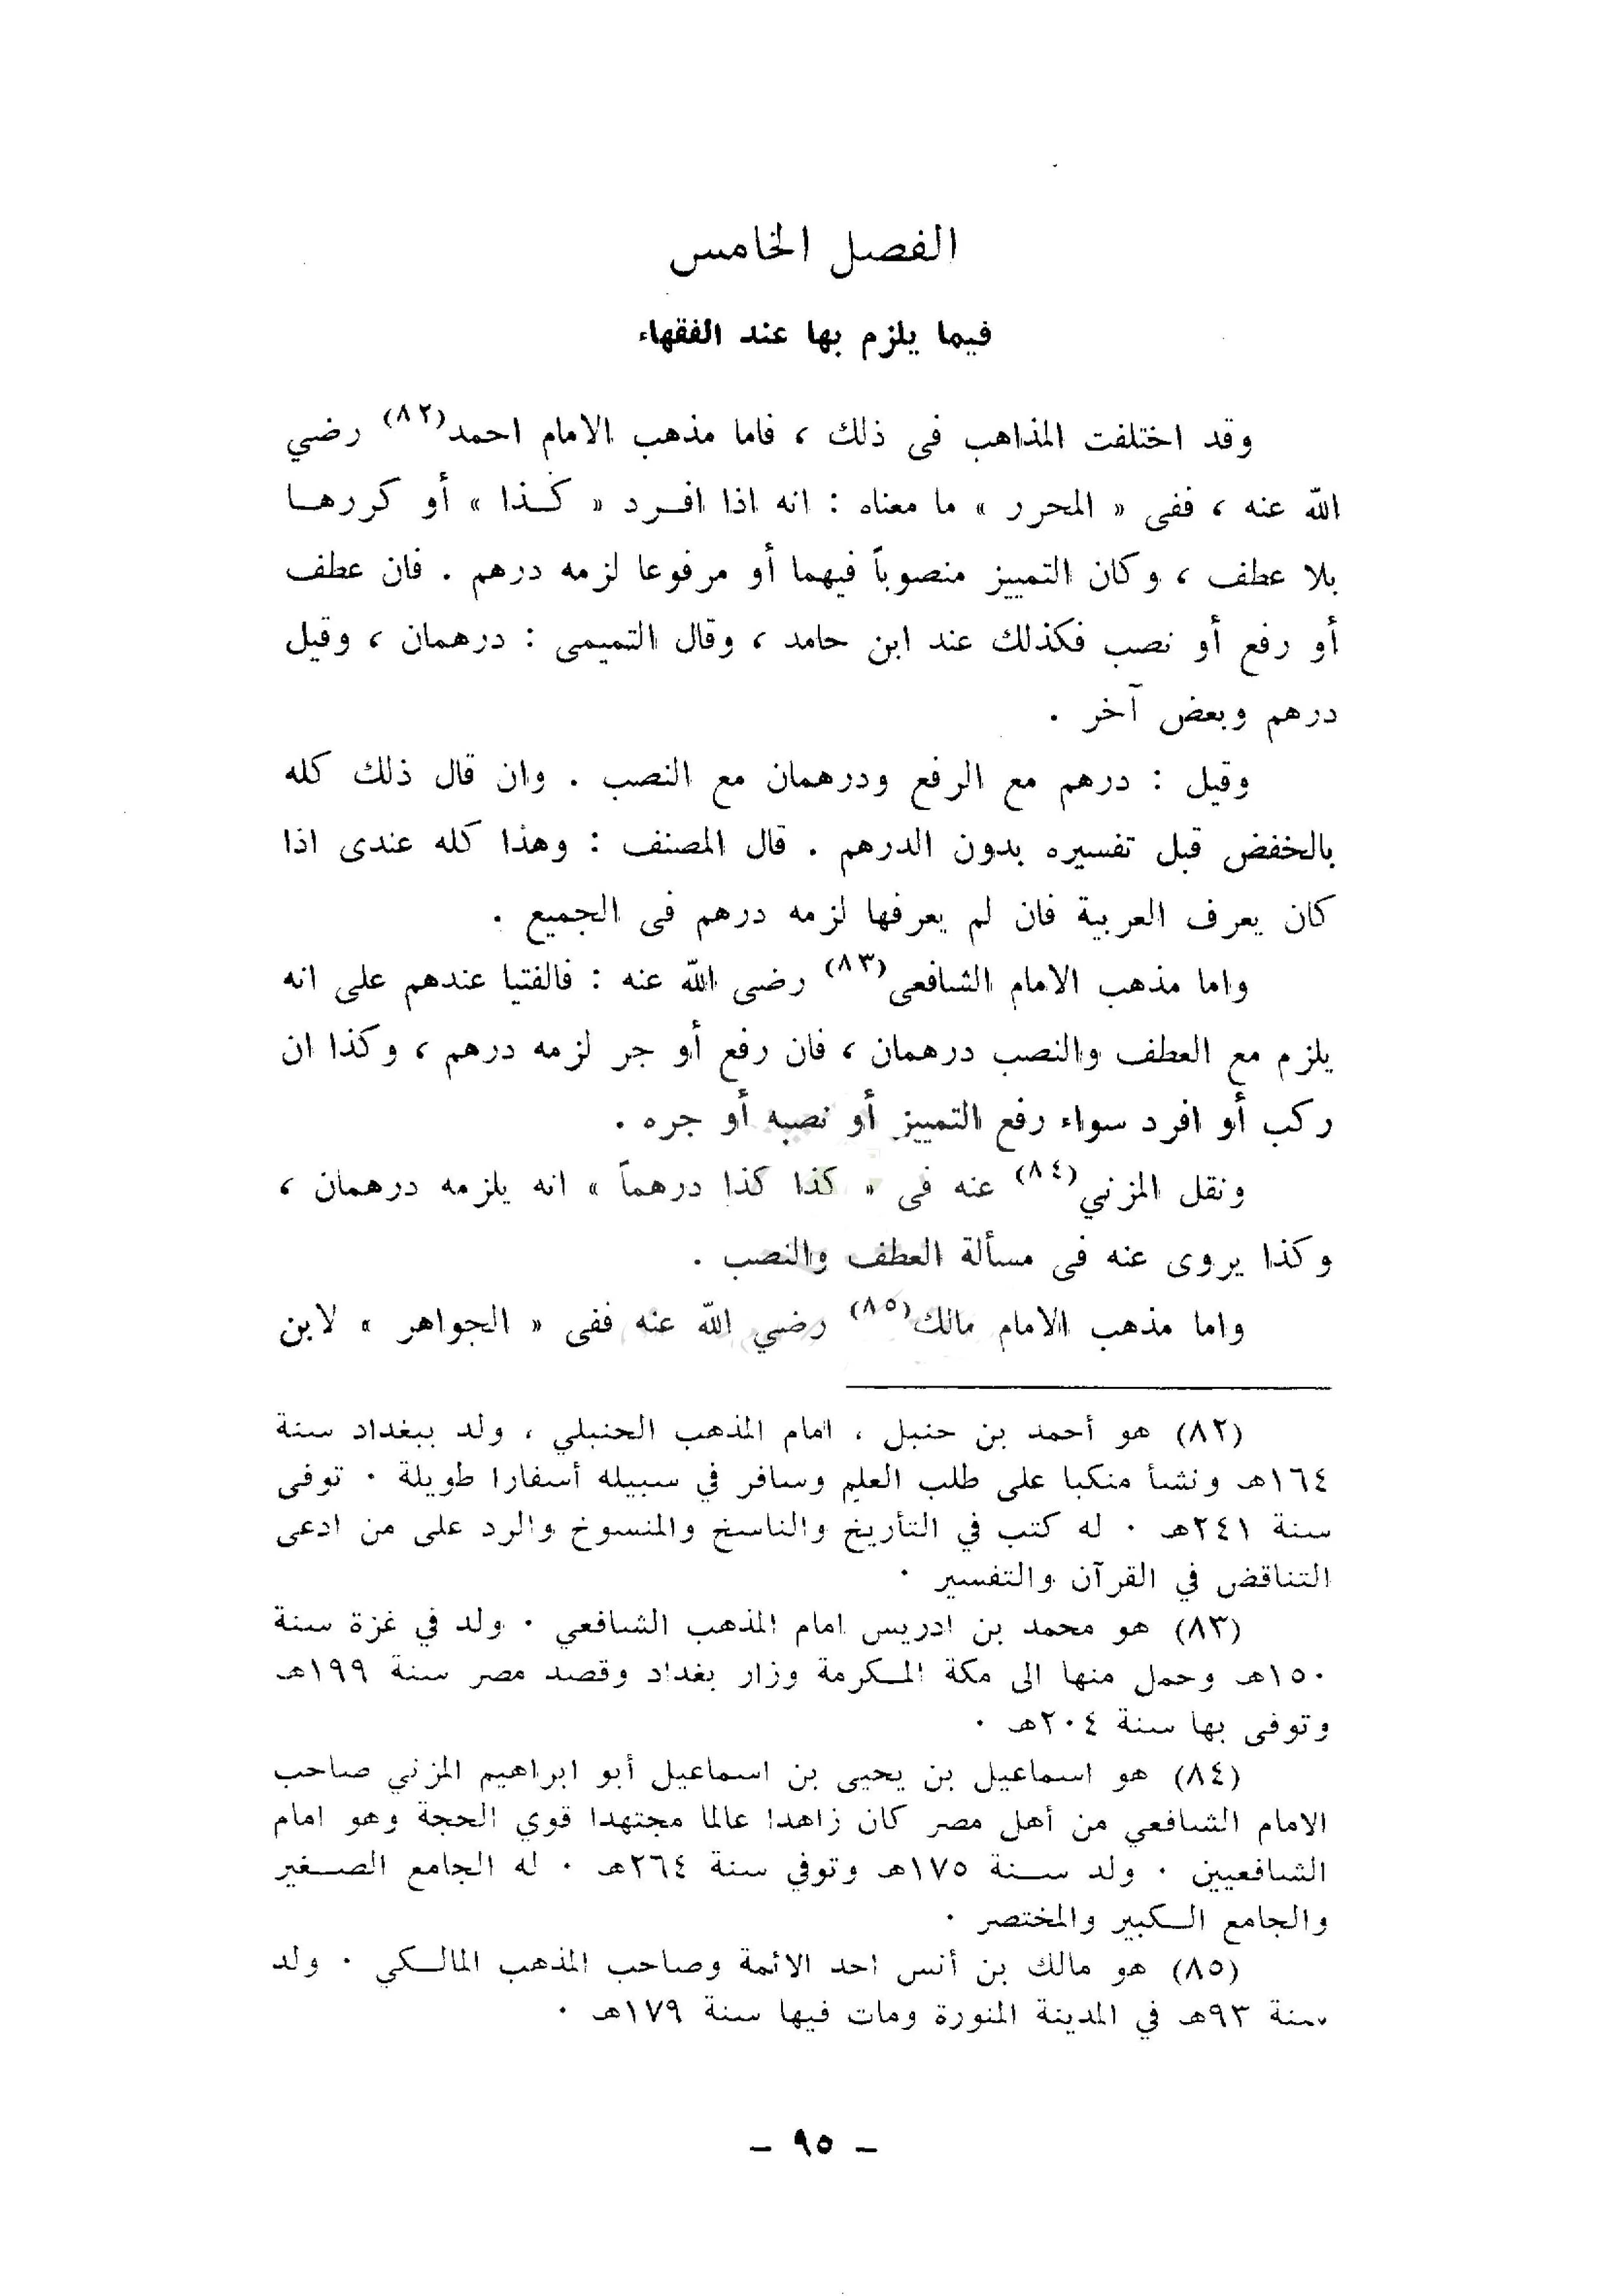 الفصل الخامس
فيما يلزم بها عند الفقهاء
وقد اختلفت المذاهب فى ذلك ، فاما مذهب الامام احمد(٨٢) رضي
الله عنه ، ففى « المحرر » ما معناه : انه اذا افــرد « كــذا » أو كررهــا
بلا عطف ، وكان التمييز منصوباً فيهما أو مرفوعا لزمه درهم . فان عطف
أو رفع أو نصب فكذلك عند ابن حامد ، وقال التميمى : درهمان ، وقيل
درهم وبعض آخر .
وقيل : درهم مع الرفع ودرهمان مع النصب . وان قال ذلك كله
بالخفض قبل تفسيره بدون الدرهم . قال المصنف : وهذا كله عندى اذا
كان يعرف العربية فان لم يعرفها لزمه درهم فى الجميع .
واما مذهب الامام الشافعى(٨٣) رضى الله عنه : فالفتيا عندهم على انه
يلزم مع العطف والنصب درهمان ، فان رفع أو جر لزمه درهم ، وكذا ان
ركب أو افرد سواء رفع التمييز أو نصبه أو جره .
ونقل المزني(٨٤) عنه فى « كذا كذا درهماً » انه يلزمه درهمان ،
وكذا يروى عنه فى مسألة العطف والنصب .
واما مذهب الامام مالك(٨٥) رضي الله عنه ففى « الجواهر » لابن
(٨٢) هو أحمد بن حنبل ، امام المذهب الحنبلي ، ولد ببغداد سنة
١٦٤هـ ونشأ منكبا على طلب العلم وسافر في سبيله أسفارا طويلة . توفى
سنة ٢٤١هـ . له كتب في التأريخ والناسخ والمنسوخ والرد على من ادعى
التناقض في القرآن والتفسير .
(٨٣) هو محمد بن ادريس امام المذهب الشافعي . ولد في غزة سنة
١٥٠هـ وحمل منها الى مكة المـكرمة وزار بغداد وقصد مصر سنة ١٩٩هـ
وتوفى بها سنة ٢٠٤هـ .
(٨٤) هو اسماعيل بن يحيى بن اسماعيل أبو ابراهيم المزني صاحب
الامام الشافعي من أهل مصر كان زاهدا عالما مجتهدا قوي الحجة وهو امام
الشافعيين . ولد ســنة ١٧٥هـ وتوفي سنة ٢٦٤هـ . له الجامع الصــغير
والجامع الـكبير والمختصر .
(٨٥) هو مالك بن أنس احد الائمة وصاحب المذهب المالـكي . ولد
سنة ٩٣هـ في المدينة المنورة ومات فيها سنة ١٧٩هـ .
– ٩٥ –